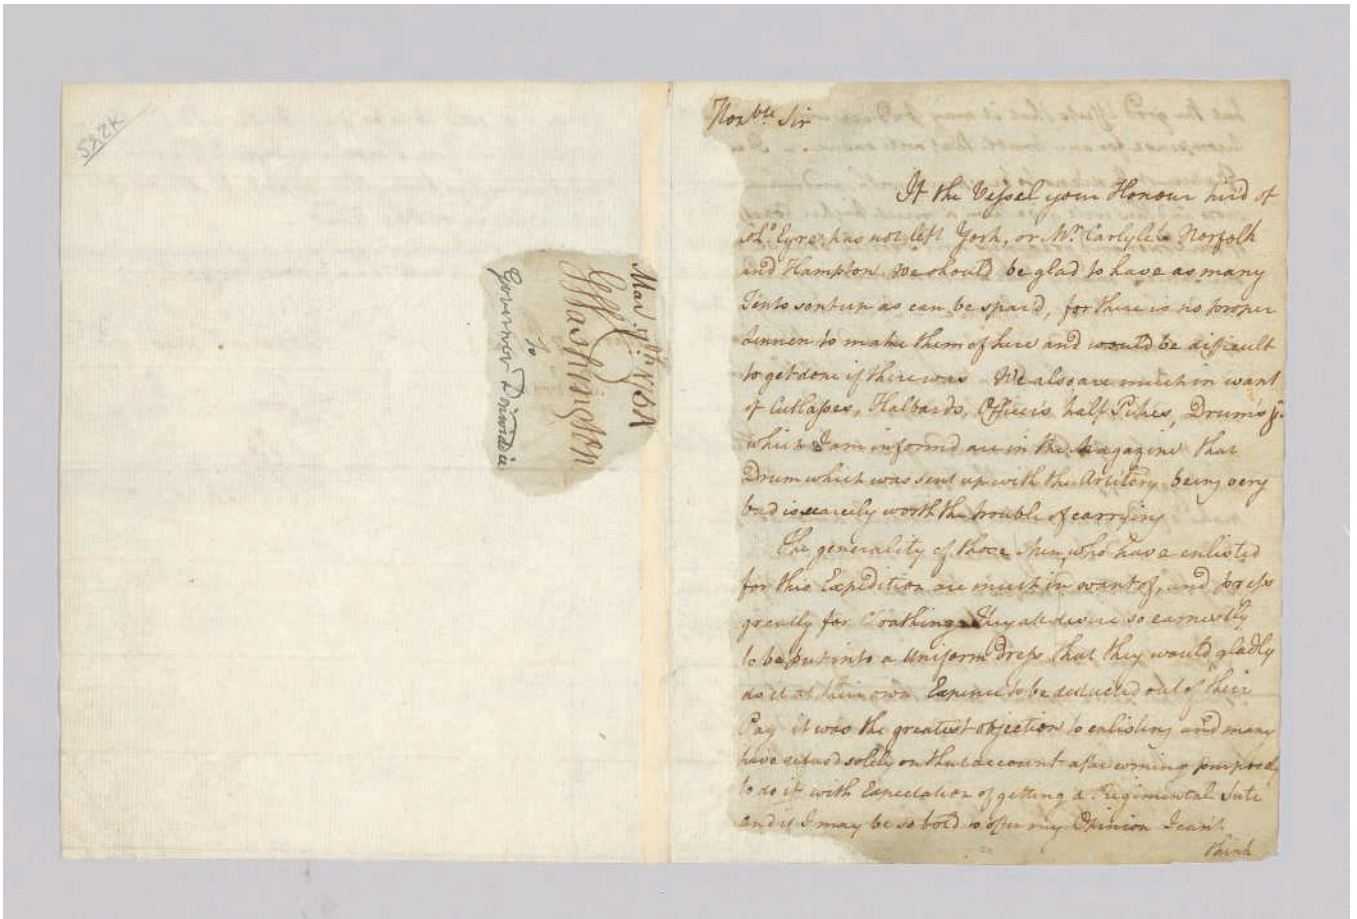 5282K
Mar. 7th 1754
GWashington
to
Governor Dinwiddie
Honble Sir
If the Vessel your Honour hir'd of
Colo Eyre has not left York, or Mr Carlyle Norfolk
and Hampton We should be glad to have as many
Tents sent up as can be spar'd, for there is no proper
Linnen to make them of here and would be difficult
to get done if there was We also are much in want
of Cutlasses, Halbards, Officer's half Pikes, Drum's &c.
which I am informd are in the Magazine that
Drum which was sent up with the Artilery being very
bad is scarcely worth the trouble of carrying
The generality of those Men, who have enlisted
for this Expedition are much in want of, and press
greatly for Cloathing They all desire so earnestly
to be put into a Uniform Dress that they would gladly
do it at their own Expence to be deducted out of their
Pay it was the greatest objection to enlisting and many
have refusd solely on that account after coming purposely
to do it with Expectation of getting a Regimental Sute
and if I may be so bold to offer my Opinion I can't
think